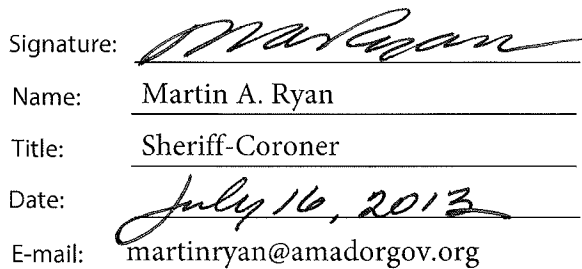 Signature: MARyan
Name: Martin A. Ryan
Title: Sheriff-Coroner
Date: July 16, 2013
E-mail: martinryan@amadorgov.org